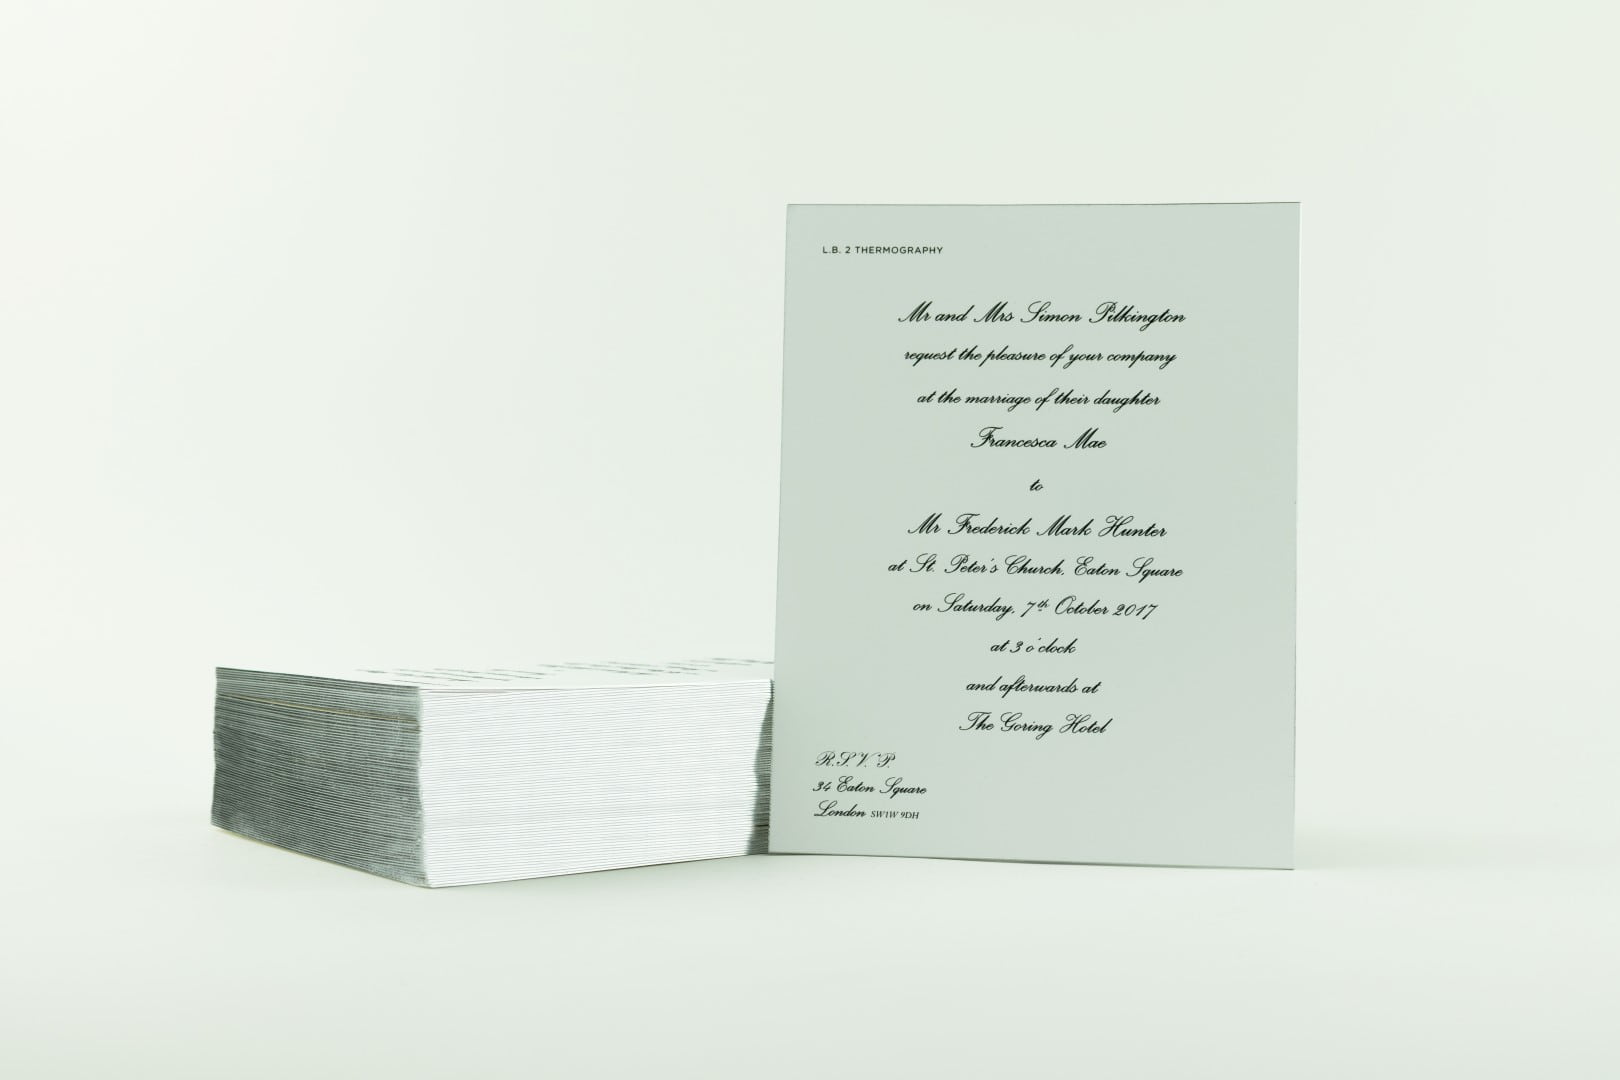 L.B. 2 THERMOGRAPHY
Mr and Mrs Simon Pilkington
request the pleasure of your company
at the marriage of their daughter
Francesca Mae
to
Mr Frederick Mark Hunter
at St. Peter's Church, Eaton Square
on Saturday, 7th October 2017
at 3 o'clock
and afterwards at
The Goring Hotel
R.S.V.P.
34 Eaton Square
London SW1W 9DH